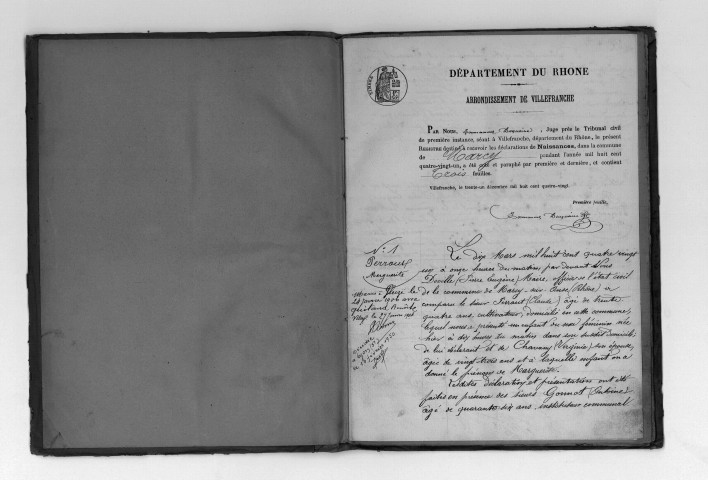 DÉPARTEMENT DU RHONE
ARRONDISSEMENT DE VILLEFRANCHE
PAR NOUS, , Juge près le Tribunal civil
de première instance, séant à Villefranche, département du Rhône, le présent
REGISTRE destiné à recevoir les déclarations de Naissances, dans la commune
de Marcy pendant l'année mil huit cent
quatre-vingt-un, a été coté et paraphé par première et dernière, et contient
Trois feuilles.
Villefranche, le trente-un décembre mil huit cent quatre-vingt.
Première feuille,
N° 1
Perraud
Marguerite
Le dix Mars mil huit cent quatre vingt
un à onze heures du matin par devant Nous
Deville (Pierre Eugène) Maire, officier de l'état civil
de la commune de Marcy-sur-Anse (Rhône) a
comparu le sieur Perraud (Claude) âgé de trente
quatre ans cultivateur, domicilié en cette commune,
lequel nous a présenté un enfant du sexe féminin née
hier à dix heures du matin dans son susdit domicile
de lui déclarant et de Chavanny (Virginie) son épouse,
âgée de vingt trois ans et à laquelle enfant on a
donné le prénom de Marguerite.
Lesdites déclaration et présentation ont été
faites en présence des sieurs Gonnot (Antoine)
âgé de quarante six ans, instituteur communal